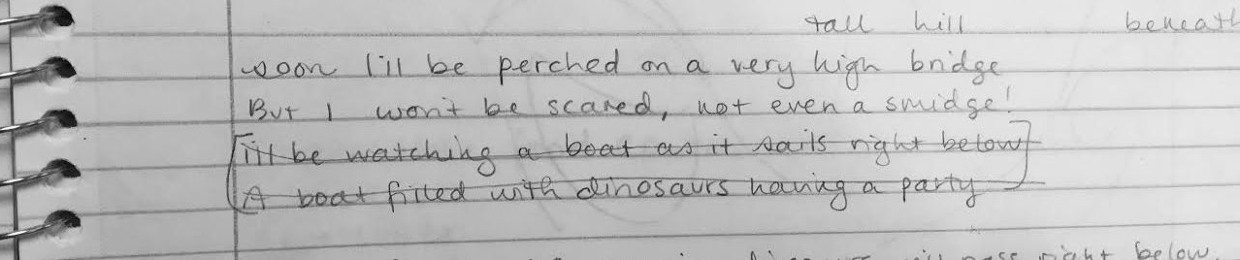 tall hill beneath
soon I'll be perched on a very high bridge
But I won't be scared, not even a smidge!
I'll be watching a boat as it sails right below
A boat filled with dinosaurs having a party
pass right below.